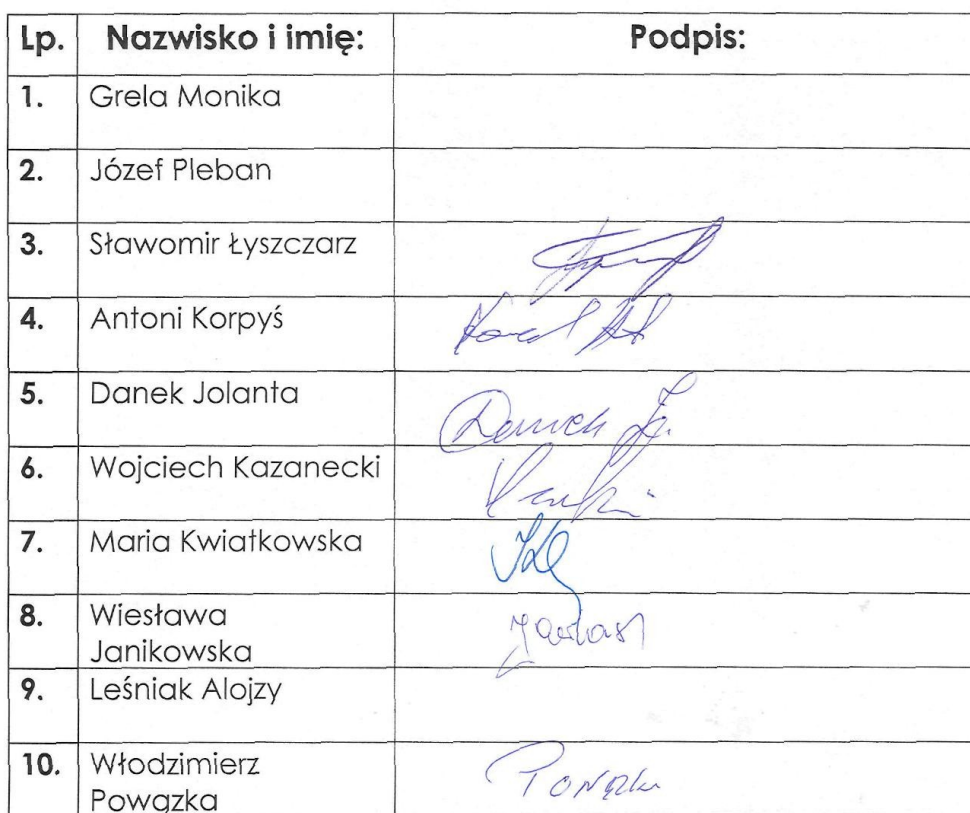 Lp. Nazwisko i imię: Podpis:
1. Grela Monika
2. Józef Pleban
3. Sławomir Łyszczarz
4. Antoni Korpyś
5. Danek Jolanta
Danek Jo.
6. Wojciech Kazanecki
7. Maria Kwiatkowska
8. Wiesława
Janikowska
9. Leśniak Alojzy
10. Włodzimierz
Powązka